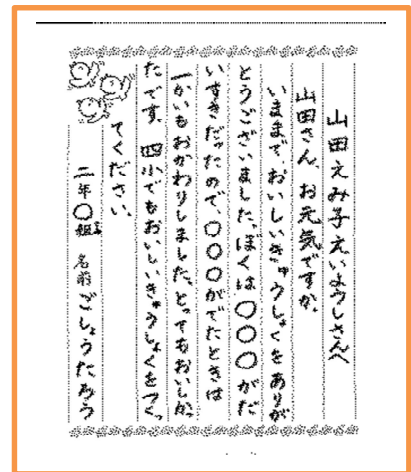 山田えみ子えいようしさんへ
山田さん、お元気ですか。
いままで、おいしいきゅうしょくをありが
とうございました。ぼくは〇〇〇がだ
いすきだったので、〇〇〇がでたときは
一かいもおかわりしました。とってもおいしかっ
たです。四小でもおいしいきゅうしょくをつくっ
てください。
二年〇組 名前 ごしょうたろう